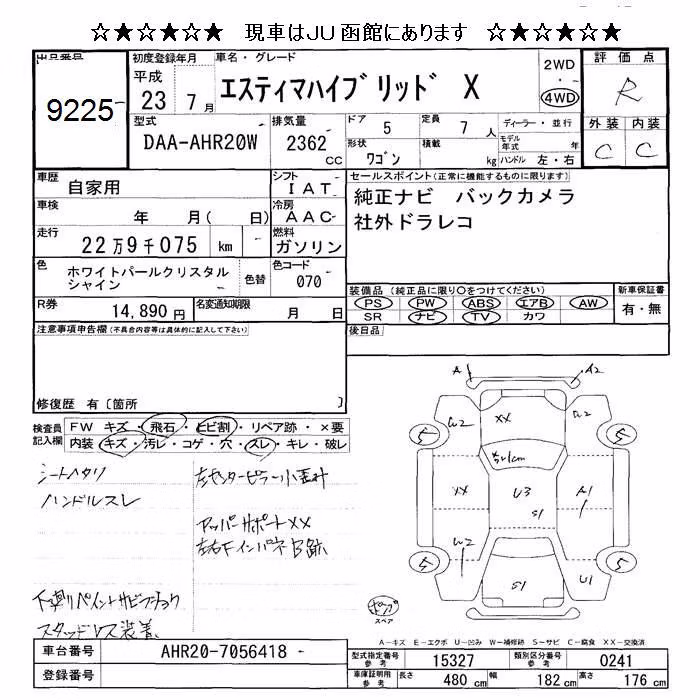 ☆★☆★☆★ 現車はJU函館にあります ☆★☆★☆★
出品番号
9225
初度登録年月
平成 23 7月
車名・グレード
エスティマハイブリッド X
2WD
・
4WD
評価点
R
外装 内装
C C
型式
DAA-AHR20W
排気量
2362 cc
ドア 5
形状 ワゴン
定員 7人
積載 kg
ディーラー・並行
モデル年式 年
ハンドル 左・右
車歴 自家用
シフト IAT
車検 年 月( 日)
冷房 AAC
走行 22万9千075 km
燃料 ガソリン
色 ホワイトパールクリスタルシャイン
色替
色コード 070
R券 14,890円
名変通知期限 月 日
セールスポイント(正常に機能するものに限ります)
純正ナビ バックカメラ
社外ドラレコ
装備品 (純正品に限り○をつけてください)
PS PW ABS エアB AW
SR ナビ TV カワ
新車保証書
有・無
後日品
注意事項申告欄(不具合内容等は具体的に記入して下さい)
修復歴 有〔箇所 〕
検査員記入欄
FW キズ・飛石・ヒビ割・リペア跡・×要
内装・キズ・汚レ・コゲ・穴・スレ・キレ・破レ
シートヘタリ
ハンドルスレ
左センターピラー小歪汁
アッパーサポートXX
左右Fインパネ
下廻りペイントサビブラック
スタッドレス装着
A A2
W2 XX W2
5 5
1cm
XX U3 A1
S1
W2
5 5
S1 U1
スペア
A-キズ E-エクボ U-凹み W-補修跡 S-サビ C-腐食 XX-交換済
車台番号 AHR20-7056418
登録番号
型式指定番号 参考 15327
類別区分番号 参考 0241
車庫証明用 参考 長さ 480 cm 幅 182 cm 高さ 176 cm